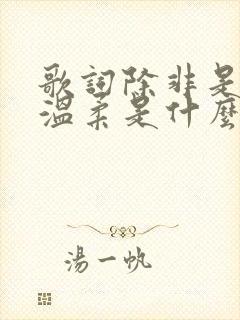 歌詞除非是
溫柔是什麼
湯一帆